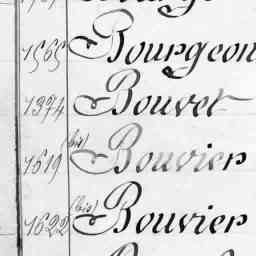 1565 Bourgeon
1374 Bouvet
1619 (bis) Bouvier
1622 (bis) Bouvier